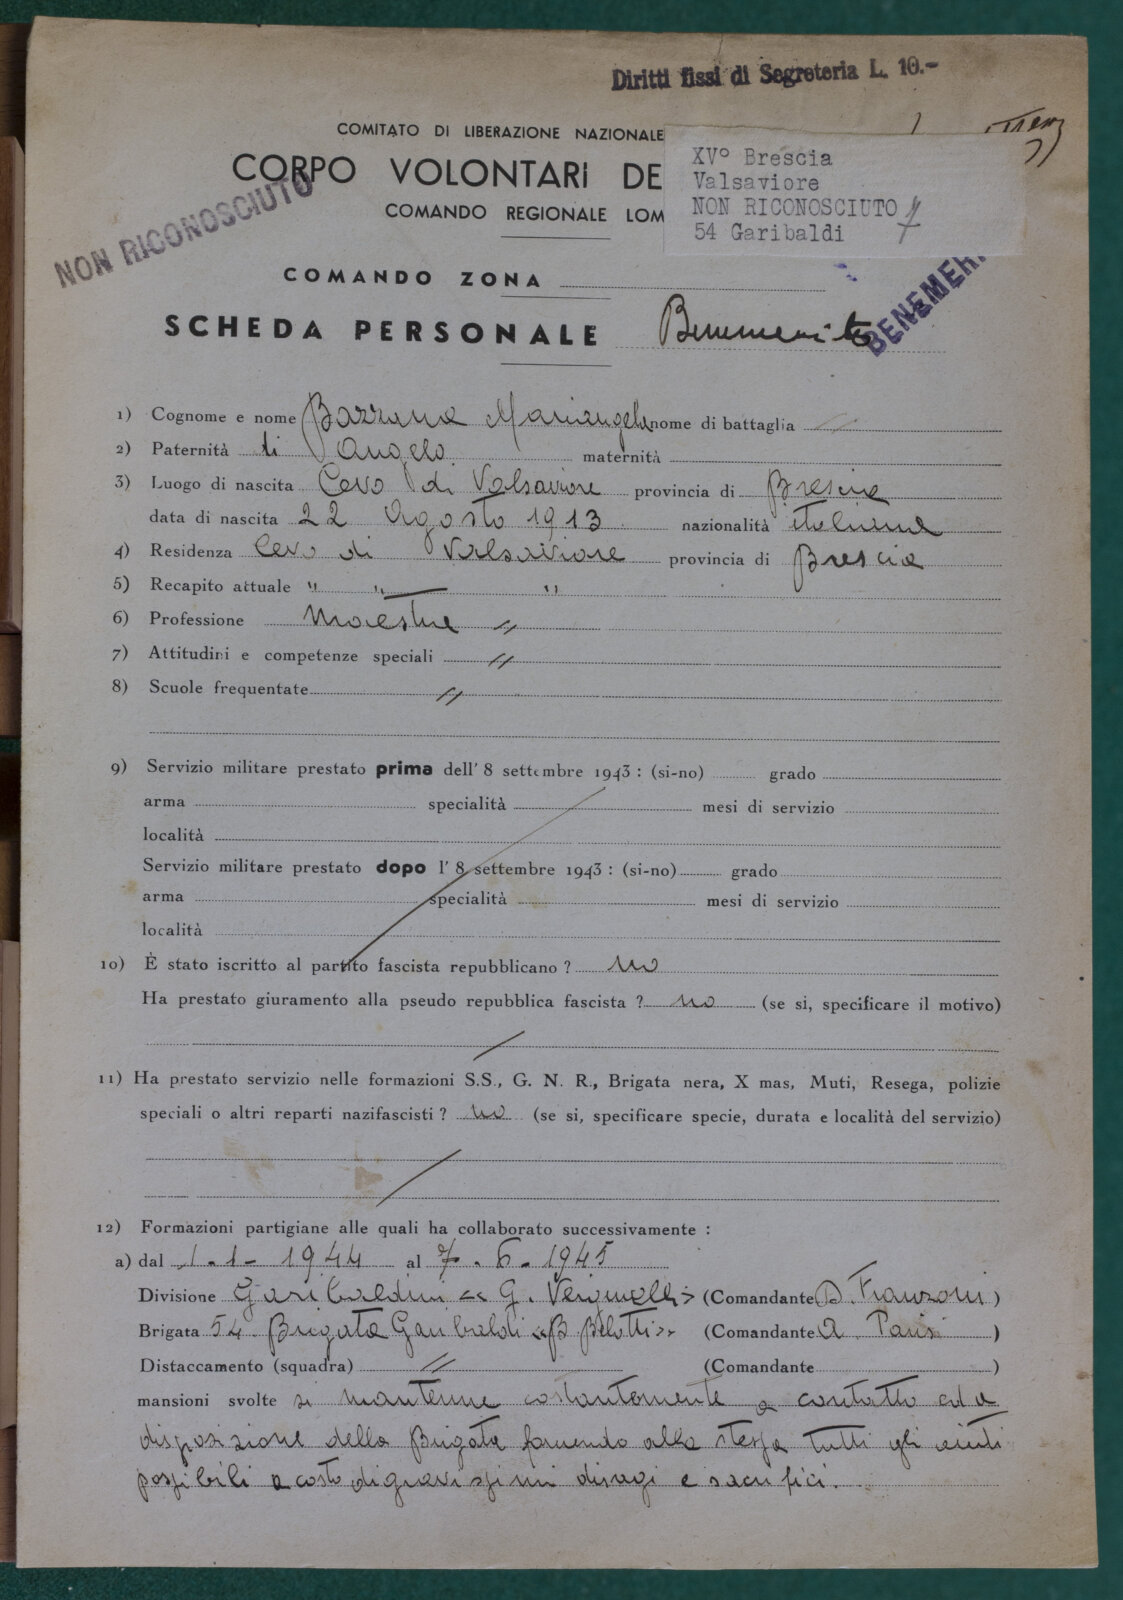 Diritti fissi di Segreteria L. 10.-
COMITATO DI LIBERAZIONE NAZIONALE
CORPO VOLONTARI DE
COMANDO REGIONALE LOM
XVº Brescia
Valsaviore
NON RICONOSCIUTO
54 Garibaldi
NON RICONOSCIUTO
BENEMERI
COMANDO ZONA
SCHEDA PERSONALE Benemerito
1) Cognome e nome Bazzana Mariangela nome di battaglia //
2) Paternità di Angelo maternità
3) Luogo di nascita Cevo di Valsaviore provincia di Brescia
data di nascita 22 Agosto 1913 nazionalità italiana
4) Residenza Cevo di Valsaviore provincia di Brescia
5) Recapito attuale " " "
6) Professione Maestra //
7) Attitudini e competenze speciali //
8) Scuole frequentate //
9) Servizio militare prestato prima dell' 8 settembre 1943 : (si-no) grado
arma specialità mesi di servizio
località
Servizio militare prestato dopo l' 8 settembre 1943 : (si-no) grado
arma specialità mesi di servizio
località
10) È stato iscritto al partito fascista repubblicano ? no
Ha prestato giuramento alla pseudo repubblica fascista ? no (se si, specificare il motivo)
11) Ha prestato servizio nelle formazioni S.S., G. N. R., Brigata nera, X mas, Muti, Resega, polizie
speciali o altri reparti nazifascisti ? no (se si, specificare specie, durata e località del servizio)
12) Formazioni partigiane alle quali ha collaborato successivamente :
a) dal 1.1- 1944 al 7. 6. 1945
Divisione Garibaldini << G. >> (Comandante D. Franzoni )
Brigata 54. Brigata Garibaldi <<B Belotti>> (Comandante A Parisi )
Distaccamento (squadra) // (Comandante )
mansioni svolte si mantenne costantemente a contatto ed a
disposizione della Brigata fornendo alla stessa tutti gli aiuti
possibili a costo di gravissimi disagi e sacrifici.